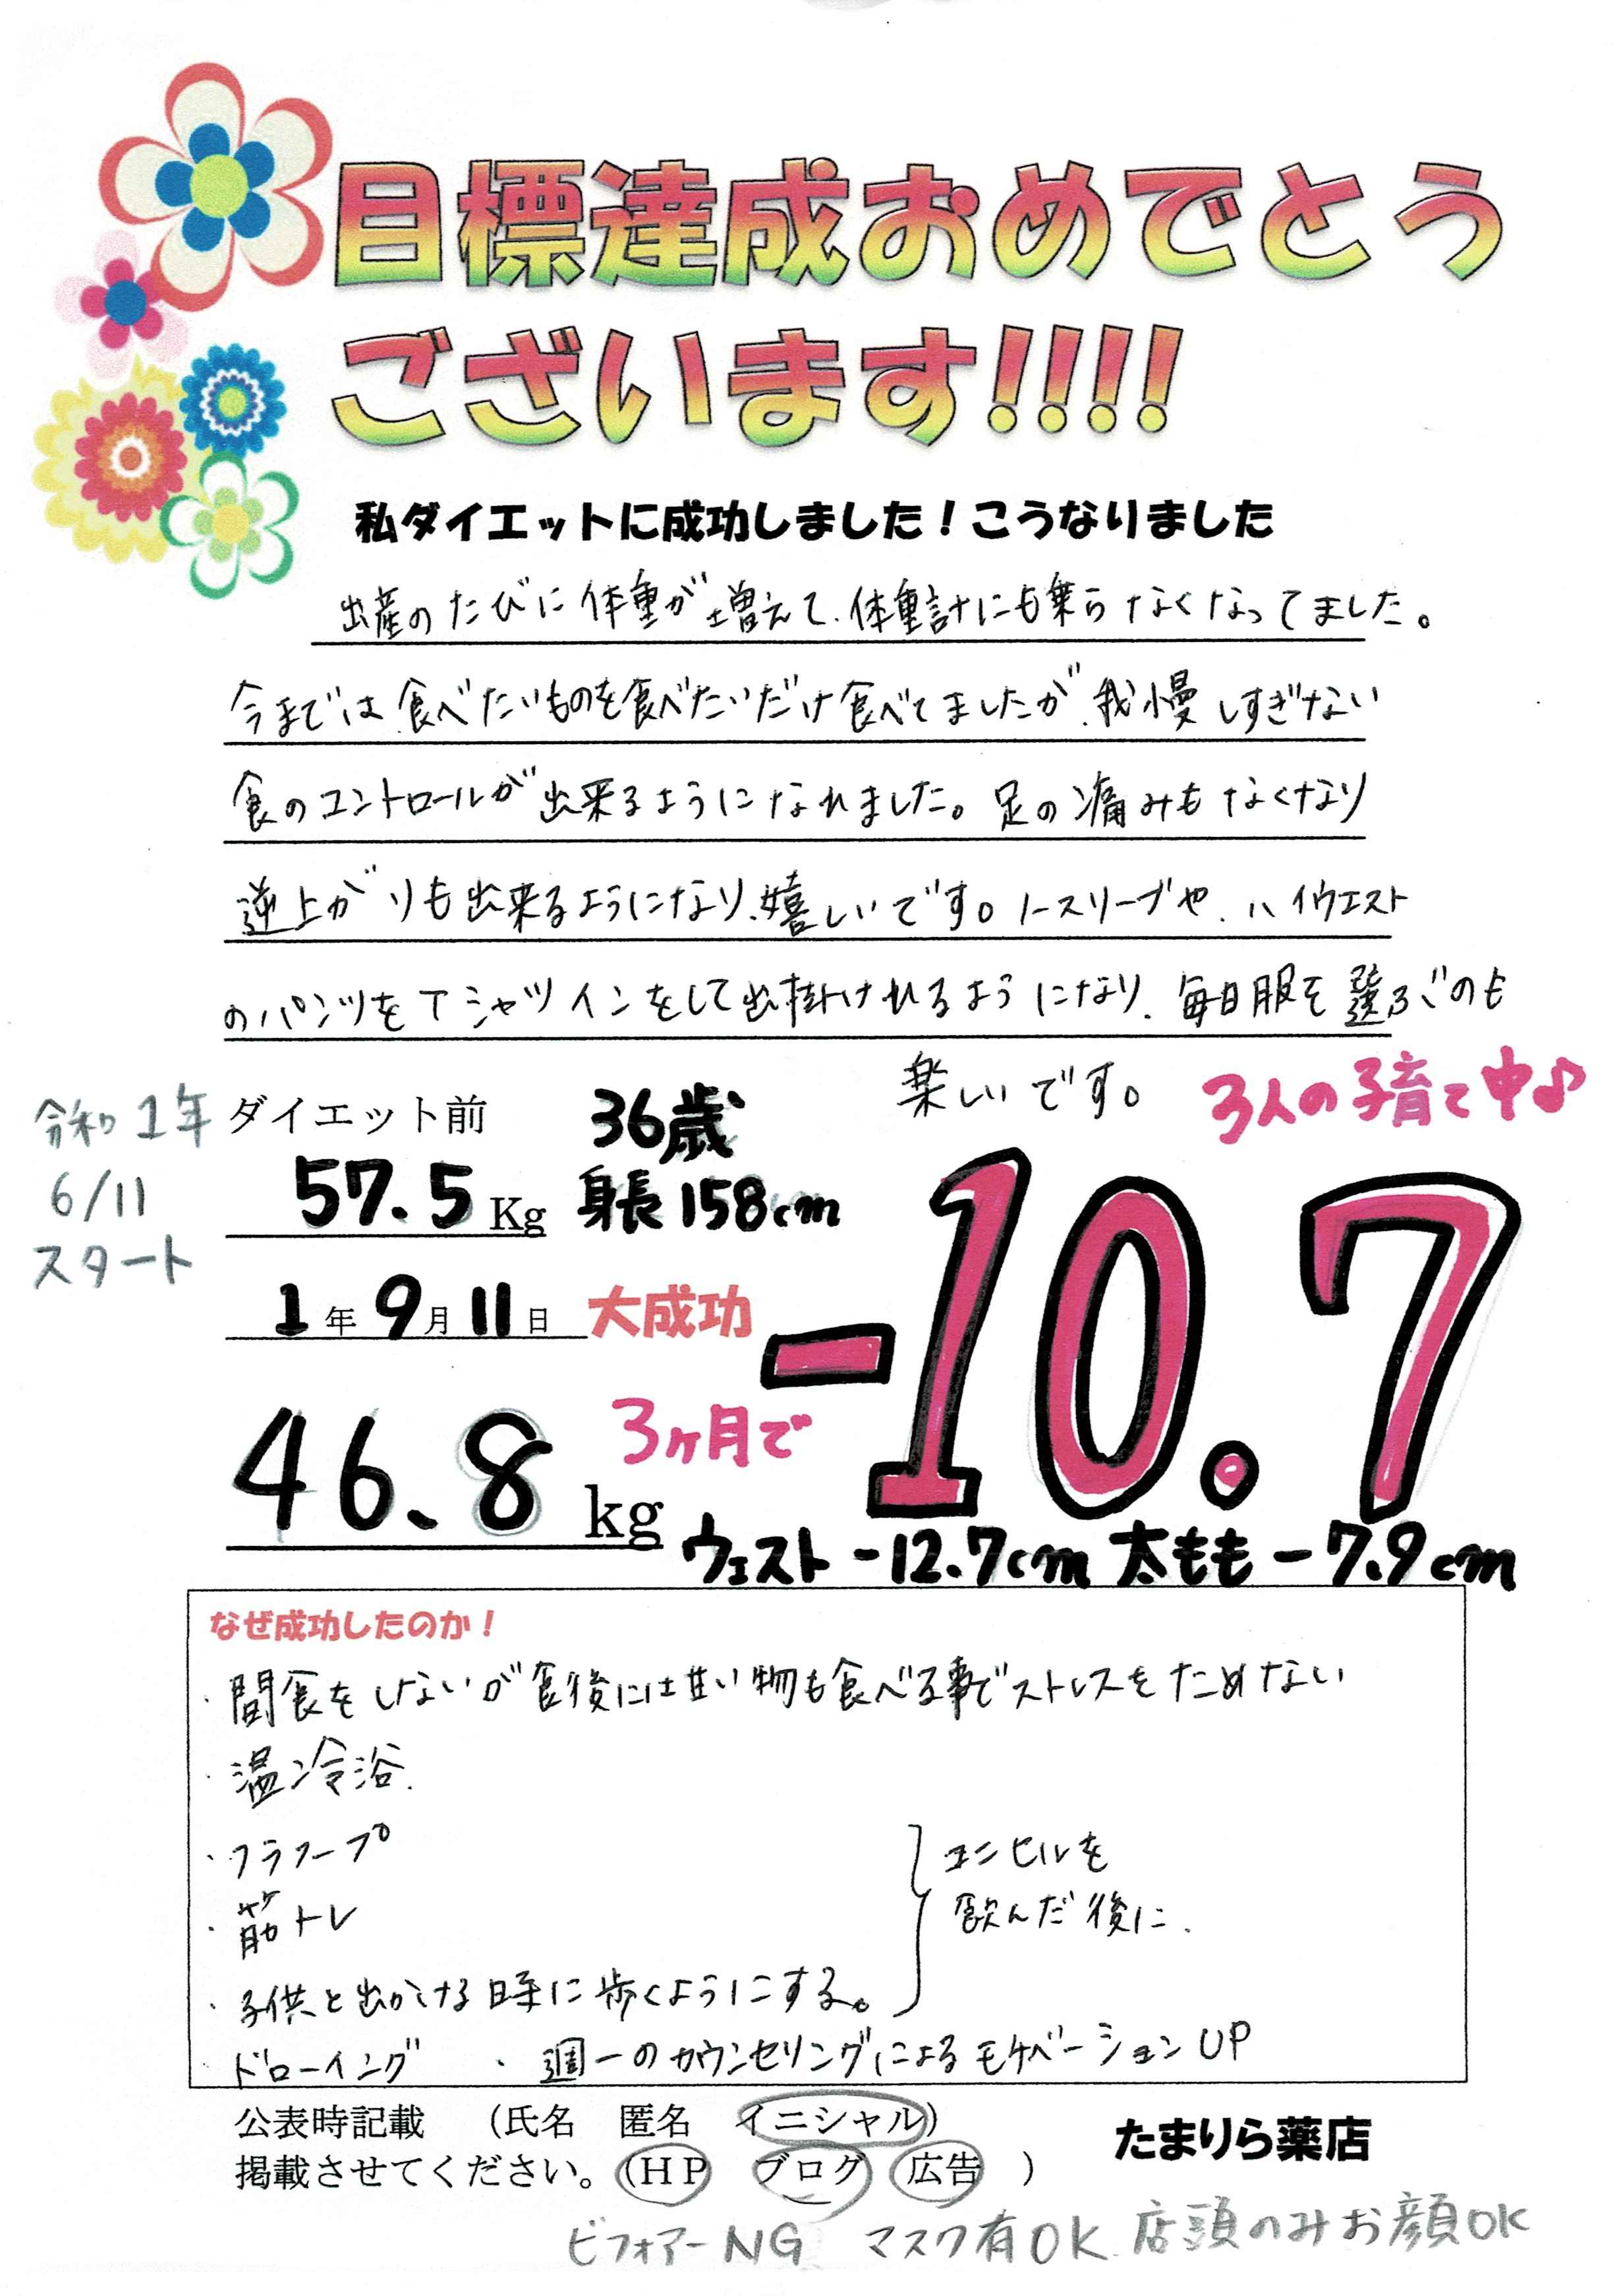 目標達成おめでとう
ございます!!!!
私ダイエットに成功しました！こうなりました
出産のたびに体重が増えて、体重計にも乗らなくなってました。
今までは、食べたいものを食べたいだけ食べてましたが、我慢しすぎない
食のコントロールが出来るようになれました。足の痛みもなくなり
逆上がりも出来るようになり、嬉しいです。ノースリーブや、ハイウエスト
のパンツをTシャツインをして出掛けれるようになり、毎日服を選ぶのも
楽しいです。 3人の子育て中♪
令和1年 ダイエット前 36歳
6/11 57.5 Kg 身長158cm
スタート
1年9月11日 大成功
-10.7
46.8 kg 3ヶ月で
ウェスト -12.7cm 太もも -7.9cm
なぜ成功したのか！
・間食をしないが食後には甘い物も食べる事でストレスをためない
・温冷浴.
・フラフープ
・筋トレ
・子供と出かける時に歩くようにする。
エンビルを
飲んだ後に.
・ドローイング ・週一のカウンセリングによるモチベーションUP
公表時記載 （氏名 匿名 イニシャル）
掲載させてください。（HP ブログ 広告 ）
たまりら薬店
ビフォアーNG マスク有OK. 店頭のみお顔OK